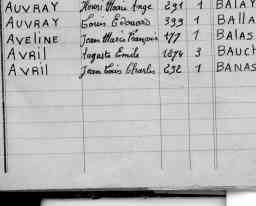 AUVRAY Marie Ange 291 1 BALAY
AUVRAY Louis Edouard 399 1 BALLA
AVELINE Jean Marie François 177 1 BALAS
AVRIL Auguste Emile 1274 3 BAUCH
AVRIL Jean Louis Charles 292 1 BANAS